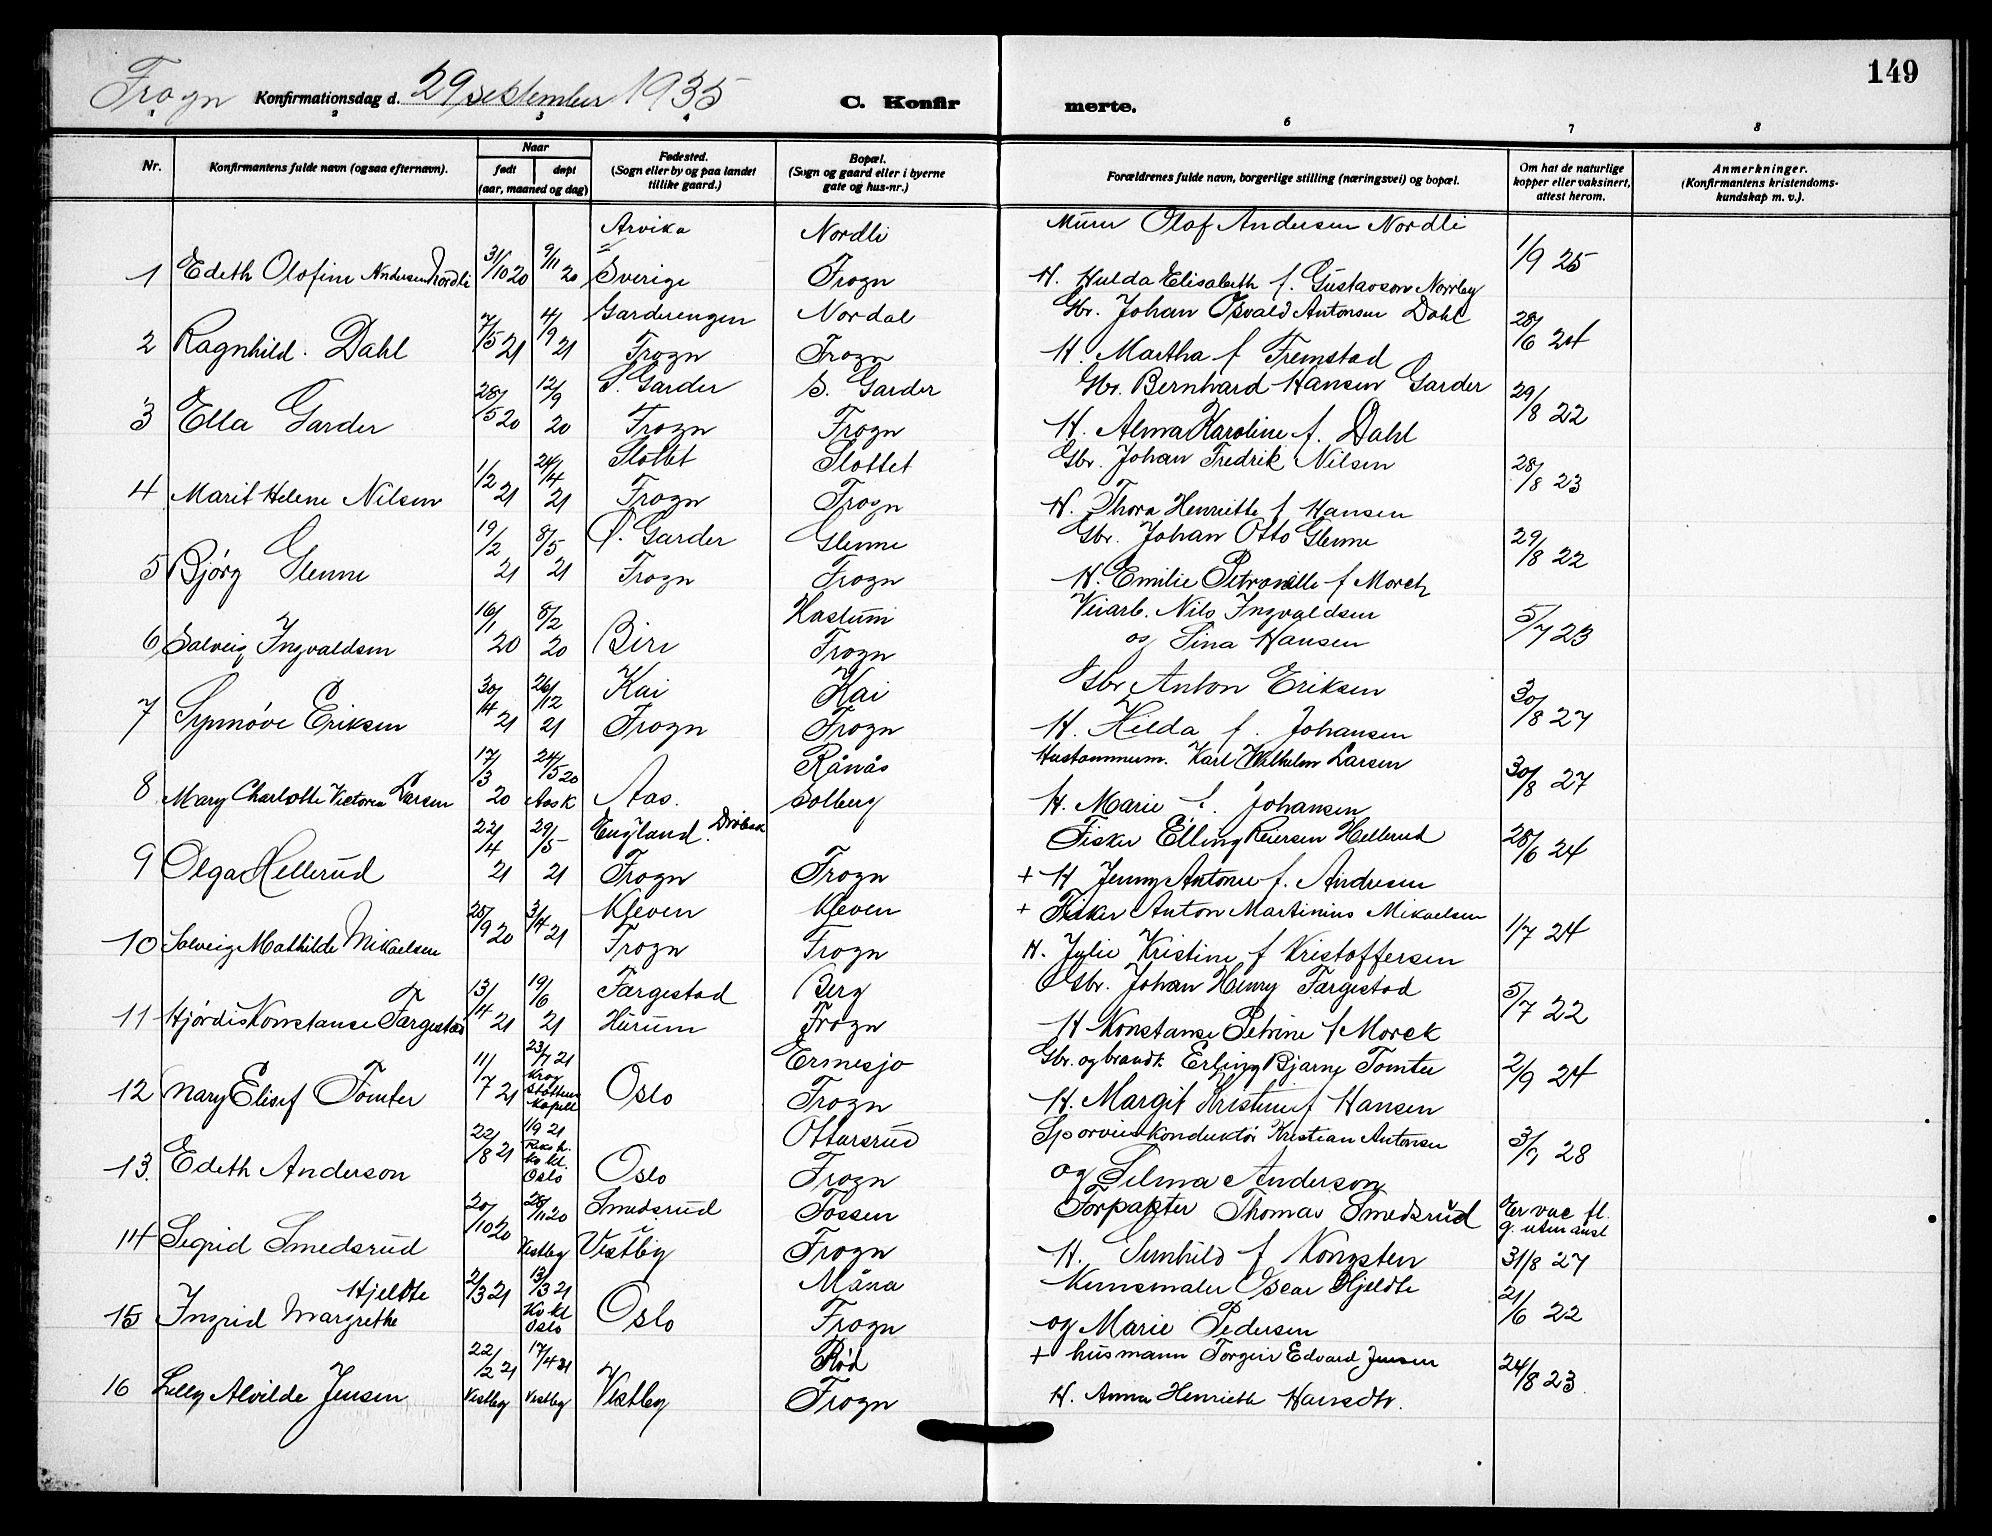 149
Frogn Konfirmationsdag d. 29 september 1935 C. Konfirmerte.
1 2 3 4 6 7 8
Nr. Konfirmantens fulde navn (ogsaa efternavn). Naar født døpt (aar, maaned og dag) Fødested. (Sogn eller by og paa landet tillike gaard.) Bopæl. (Sogn og gaard eller i byerne gate og hus-nr.) Forældrenes fulde navn, borgerlige stilling (næringsvei) og bopæl. Om hat de naturlige kopper eller vaksinert, attest herom. Anmerkninger. (Konfirmantens kristendoms-kundskap m. v.).
Arvika Nordli Murer Olaf Andersen Nordli
1 Edeth Olofine Andersen Nordli 31/10 20 9/11 20 Sverige Frogn H. Hulda Elisabeth f. Gustavson Norrby 1/9 25
Garderengen Nordal Gbr. Johan Osvald Antonsen Dahl
2 Ragnhild. Dahl 7/5 21 4/9 21 Frogn Frogn H. Martha f Fremstad 28/6 24
S. Garder S. Garder Gbr. Bernhard Hansen Garder
3 Ella Garder 28/5 20 12/9 20 Frogn Frogn H. Alma Karoline f. Dahl 29/8 22
Slottet Slottet Gbr. Johan Fredrik Nilsen
4 Marit Helene Nilsen 1/2 21 24/4 21 Frogn Frogn H. Thora Henriette f Hansen 28/8 23
Ø. Garder Glenne Gbr. Johan Otto Glenne
5 Bjørg Glenne 19/2 21 8/5 21 Frogn Frogn H. Emilie Petronille f Morch 29/8 22
Kastum Veiarb. Nils Ingvaldsen
6 Solveig Ingvaldsen 16/1 20 8/2 20 Biri Frogn og Sina Hansen 5/7 23
Kai Kai Gbr Anton Eriksen
7 Synnøve Eriksen 30/4 21 26/12 21 Frogn Frogn H. Hilda f. Johansen 30/8 27
Rånås Hustømmerm. Karl Wilhelm Larsen
8 Mary Charlotte Victoria Larsen 17/3 20 24/5 20 Aas k Aas. Solberg H. Marie f. Johansen 30/8 27
England. Drøbak Fisker Elling Reiersen Hellerud
9 Olga Hellerud 22/4 21 29/5 21 Frogn Frogn + H Jenny Antonie f. Andresen 28/6 24
Kleven Kleven + Fisker Anton Martinius Mikaelsen
10 Solveig Mathilde Mikaelsen 25/9 20 3/4 21 Frogn Frogn H. Julie Kristine f Kristoffersen 1/7 24
Færgestad Berg Gbr. Johan Henry Færgestad
11 Hjørdis Konstanse Færgestad 13/4 21 19/6 21 Hurum Frogn H Konstanse Petrine f Morck 5/7 22
Ermesjø Gbr. og brandt. Erling Bjarne Tomter
12 Mary Elisef Tomter 11/7 21 23/7 21 Krog Støtten kapell Oslo Frogn H. Margit Kristine f Hansen 2/9 24
Ottarsrud Sporveiskonduktør Kristian Antonsen
13. Edeth Anderson 22/8 21 19 21 Riks h. ko kl. Oslo Oslo Frogn og Selma Anderson 3/9 28
Smedsrud Fossen Forpakter Thomas Smedsrud Er vac fl. g. uten ansl
14 Sigrid Smedsrud 20/10 20 28/11 20 Vestby Vestby Frogn H. Gunhild f Kongsten 31/8 27
Hjeldte Måna Kunsmaler Oscar Hjeldte
15 Ingrid Margrethe 2/3 21 13/3 21 Ko kl Oslo Oslo Frogn og Marie Pedersen 21/6 22
Rød + husmann Torgeir Edvard Jensen
16 Lelly Alvilde Jensen 22/2 21 Vestby 17/4 21 Vestby Vestby Frogn H. Anna Henriette Hansdtr. 24/8 23